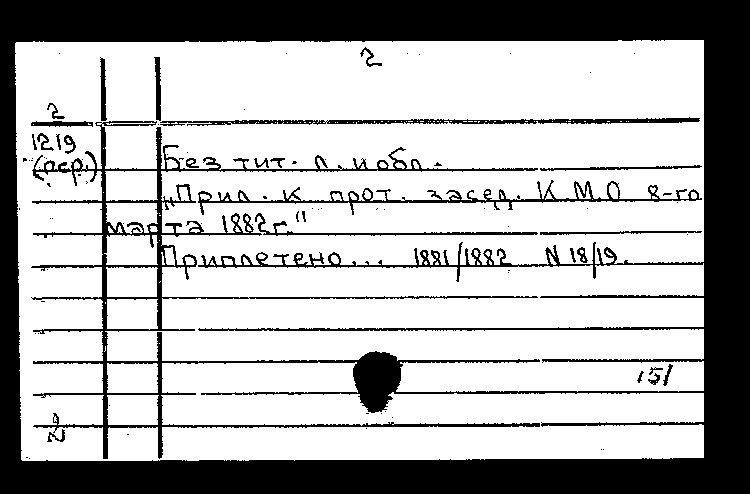 2
2
1219
(пер.)
Без тит. л. и обл.
„Прил. к прот. засед. К.М.О 8-го
марта 1882г."
Приплетено... 1881/1882 N 18/19.
151
2